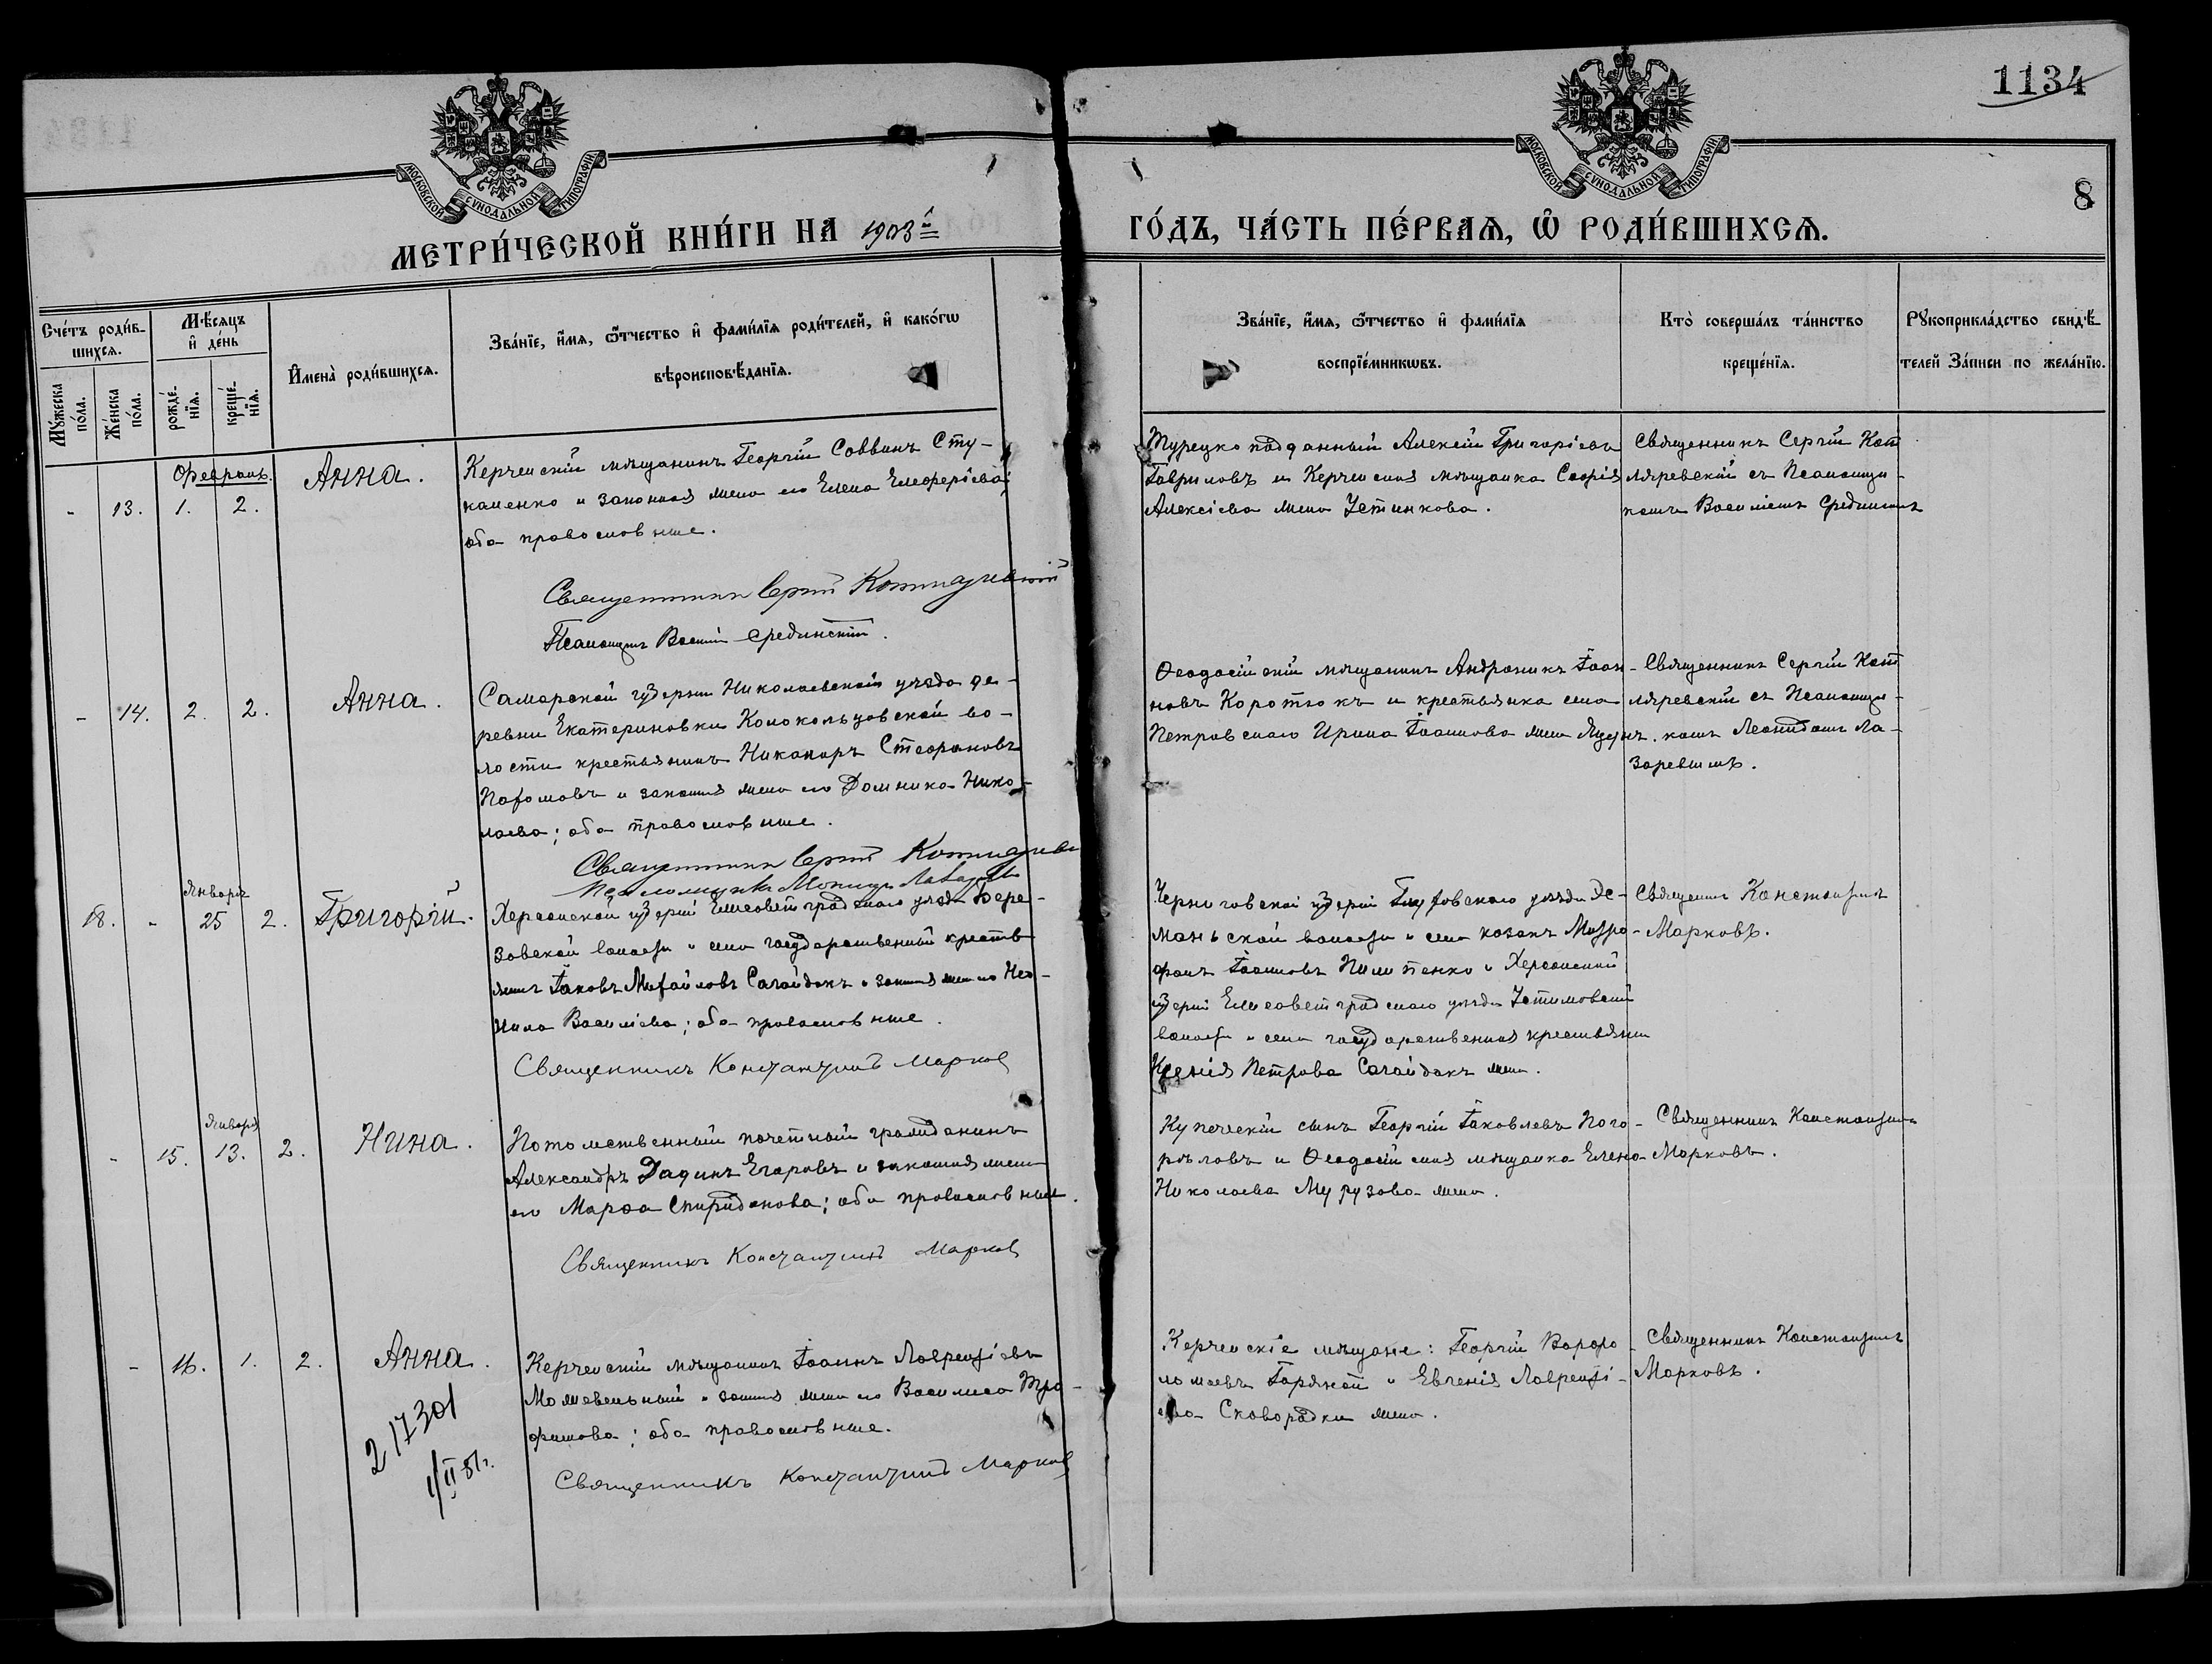 1134
8
МОСКОВСКОЙ СѴНОДАЛЬНОЙ ТИПОГРАФІИ
МОСКОВСКОЙ СѴНОДАЛЬНОЙ ТИПОГРАФІИ
МЕТРИ́ЧЕСКОЙ КНИ́ГИ НА 1903й
ГО́ДЪ, ЧА́СТЬ ПЕ́РВАѦ, Ѡ҆ РОДИ́ВШИХСѦ.
Сче́тъ роди́в-
шихсѧ.
Мꙋ́жеска по́ла.
Же́нска по́ла.
Мѣ́сѧцъ и҆ де́нь
рожде́-нїѧ.
креще́-нїѧ.
И҆мена̀ роди́вшихсѧ.
Зва́нїе, и҆́мѧ, ѻ҆́тчество и҆ фами́лїѧ роди́телей, и҆ како́гѡ
вѣроисповѣ́данїѧ.
Зва́нїе, и҆́мѧ, ѻ҆́тчество и҆ фами́лїѧ
воспрїе́мникѡвъ.
Кто̀ соверша́лъ та́инство
креще́нїѧ.
Рꙋкоприкла́дство свидѣ́-
телей за́писи по жела́нїю.
Февраль.
- 13. 1. 2.
Анна.
Керченскій мѣщанинъ Георгій Саввинъ Сту-
каченко и законная жена его Елена Елеферіева;
оба православные.
Священникъ Сергій Котляревскій
Псаломщикъ Василій Срединскій.
Турецко подданный Алексій Григоріевъ
Гавриловъ и Керченская мѣщанка Софія
Алексіева жена Устинкова.
Священникъ Сергій Кот
ляревскій съ Псаломщи-
комъ Василіемъ Срединскимъ
- 14. 2. 2.
Анна.
Самарской губерніи Николаевскаго уѣзда де-
ревни Екатериновки Колокольцовской во-
лости крестьянинъ Никаноръ Стефановъ
Пахомовъ и законная жена его Домника Нико-
лаева; оба православные.
Священникъ Сергій Котляревск
Псаломщикъ Лазарев
Ѳеодосійскій мѣщанинъ Андроникъ Іоан-
новъ Коротюкъ и крестьянка села
Петровскаго Ирина Іоаннова жена
Священникъ Сергій Кот
ляревскій съ Псаломщи-
комъ Леонидомъ Ла-
заревымъ.
Января
18. - 25 2.
Григорій.
Херсонской губерніи Елисаветградскаго уѣзда Бере-
зовской волости и села государственный кресть
янинъ Іаковъ Михайловъ Сагайдакъ и законная жена его Нео-
нила Василіева; оба православные.
Священникъ Константинъ Марков
Черниговской губерніи Глуховскаго уѣзда Эс-
маньской волости и села козакъ Митро-
фанъ Іоанновъ Пилипенко и Херсонской
губерніи Елисаветградскаго уѣзда Устимовской
волости и села государственная крестьянка
Ксенія Петрова Сагайдакъ жена.
Священникъ Константинъ
Марковъ.
Января
- 15. 13. 2.
Нина.
Потомственный почетный гражданинъ
Александръ Егоровъ и законная жена
его Марфа Спиридонова; оба православные.
Священникъ Константинъ Марков
Купеческій сынъ Георгій Іаковлевъ Пого-
рѣловъ и Ѳеодосійская мѣщанка Елена
Николаева Мурузова жена.
Священникъ Константинъ
Марковъ.
- 16. 1. 2.
Анна.
217301
1/II 51г.
Керченскій мѣщанинъ Іоаннъ Лаврентіевъ
Можевельный и законная жена его Василиса Тро-
фимова; оба православные.
Священникъ Константинъ Марков
Керченскіе мѣщане: Георгій Варфо-
ломеевъ Горяной и Евгенія Лаврентi-
ева Сковородки жена.
Священникъ Константинъ
Марковъ.